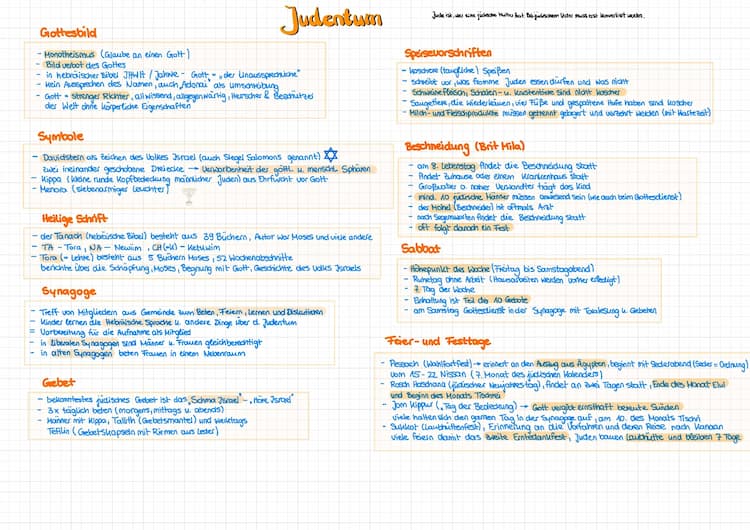 Judentum
Jude ist, wer eine jüdische Mutter hat. Bei jüdischem Vater muss erst konvertiert werden.
Gottesbild
- Monotheismus (Glaube an einen Gott)
- Bildverbot des Gottes
- in hebräischer Bibel JHWH / Jahwe - Gott = "der Unaussprechliche"
- kein Aussprechen des Namen, auch „Adonai" als Umschreibung
- Gott = strenger Richter, allwissend, allgegenwärtig, Herrscher & Beschützer
der Welt ohne körperliche Eigenschaften
Symbole
- Davidstern als Zeichen des Volkes Israel (auch Siegel Salomons genannt)
zwei ineinander geschobene Dreiecke → Verworbenheit der göttl. u. menschl. Sphären
- Kippa (kleine runde Kopfbedeckung männlicher Juden) aus Ehrfurcht vor Gott
- Menora (siebenarmiger Leuchter)
Heilige Schrift
- der Tanach (hebräische Bibel) besteht aus 39 Büchern, Autor war Moses und viele andere
- TA - Tora, NA - Newiim, CH(=K) - Ketuwim
- Tora (= Lehre) besteht aus 5 Büchern Moses, 52 Wochenabschnitte
berichte über die Schöpfung, Moses, Begnung mit Gott, Geschichte des Volks Israels
Synagoge
- Treff von Mitgliedern aus Gemeinde zum Beten, Feiern, Lernen und Diskutieren
- Kinder lernen die Hebräische Sprache u. andere Dinge über d. Judentum
= Vorbereitung für die Aufnahme als Mitglied
- in liberalen Synagogen sind Männer u. Frauen gleichberechtigt
- in alten Synagogen beten Frauen in einem Nebenraum
Gebet
- bekanntestes jüdisches Gebet ist das „Schma Israel" - „höre Israel"
- 3x täglich beten (morgens, mittags u. abends)
- Männer mit Kippa, Tallith (Gebetsmantel) und werktags
Tefilin (Gebetskapseln mit Rirmen aus Leder)
Speisevorschriften
- koschere (taugliche) Speißen
- schreibt vor, was fromme Juden essen dürfen und was nicht
- Schweinefleisch, Schalen- u. Krustentiere sind nicht koscher
- Säugetiere, die wiederkäuen, vier Füße und gespaltene Hufe haben sind koscher
- Milch- und Fleischprodukte müssen getrennt gelagert und verzehrt werden (mit Wartezeit)
Beschneidung (Brit Mila)
- am 8. Lebenstag findet die Beschneidung statt
- findet Zuhause oder einem Krankenhaus statt
- Großvater o. naher Verwandter trägt das Kind
- mind. 10 jüdische Männer müssen anwesend sein (wie auch beim Gottesdienst)
- der Mohel (Beschneider) ist oftmals Arzt
- nach Segensworten findet die Beschneidung statt
- oft folgt danach ein Fest
Sabbat
- Höhepunkt der Woche (Freitag bis Samstagabend)
- Ruhetag ohne Arbeit (Hausarbeiten werden vorher erledigt)
- 7. Tag der Woche
- Einhaltung ist Teil der 10 Gebote
- am Samstag Gottesdienst in der Synagoge mit Toralesung u. Gebeten
Feier- und Festtage
- Pessach (Wallfahrtfest) → erinnert an den Auszug aus Ägypten, beginnt mit Sederabend (Seder = Ordnung)
vom 15.-22. Nissan (7. Monat des jüdischen Kalenders)
- Rosch Haschana (jüdischer Neujahrestag), findet an zwei Tagen statt, Ende des Monats Elul
und Beginn des Monats Tischrei
- Jom Kippur („Tag der Bedeckung) → Gott vergibt ernsthaft bereute Sünden
viele halten sich den ganzen Tag in der Synagoge auf, am 10. des Monats Tischri
- Sukkot (Laubhüttenfest), Erinnerung an die Vorfahren und deren Reise nach Kanaan
viele feiern damit das zweite Erntedankfest, Juden bauen Laubhütte und bleiben 7 Tage